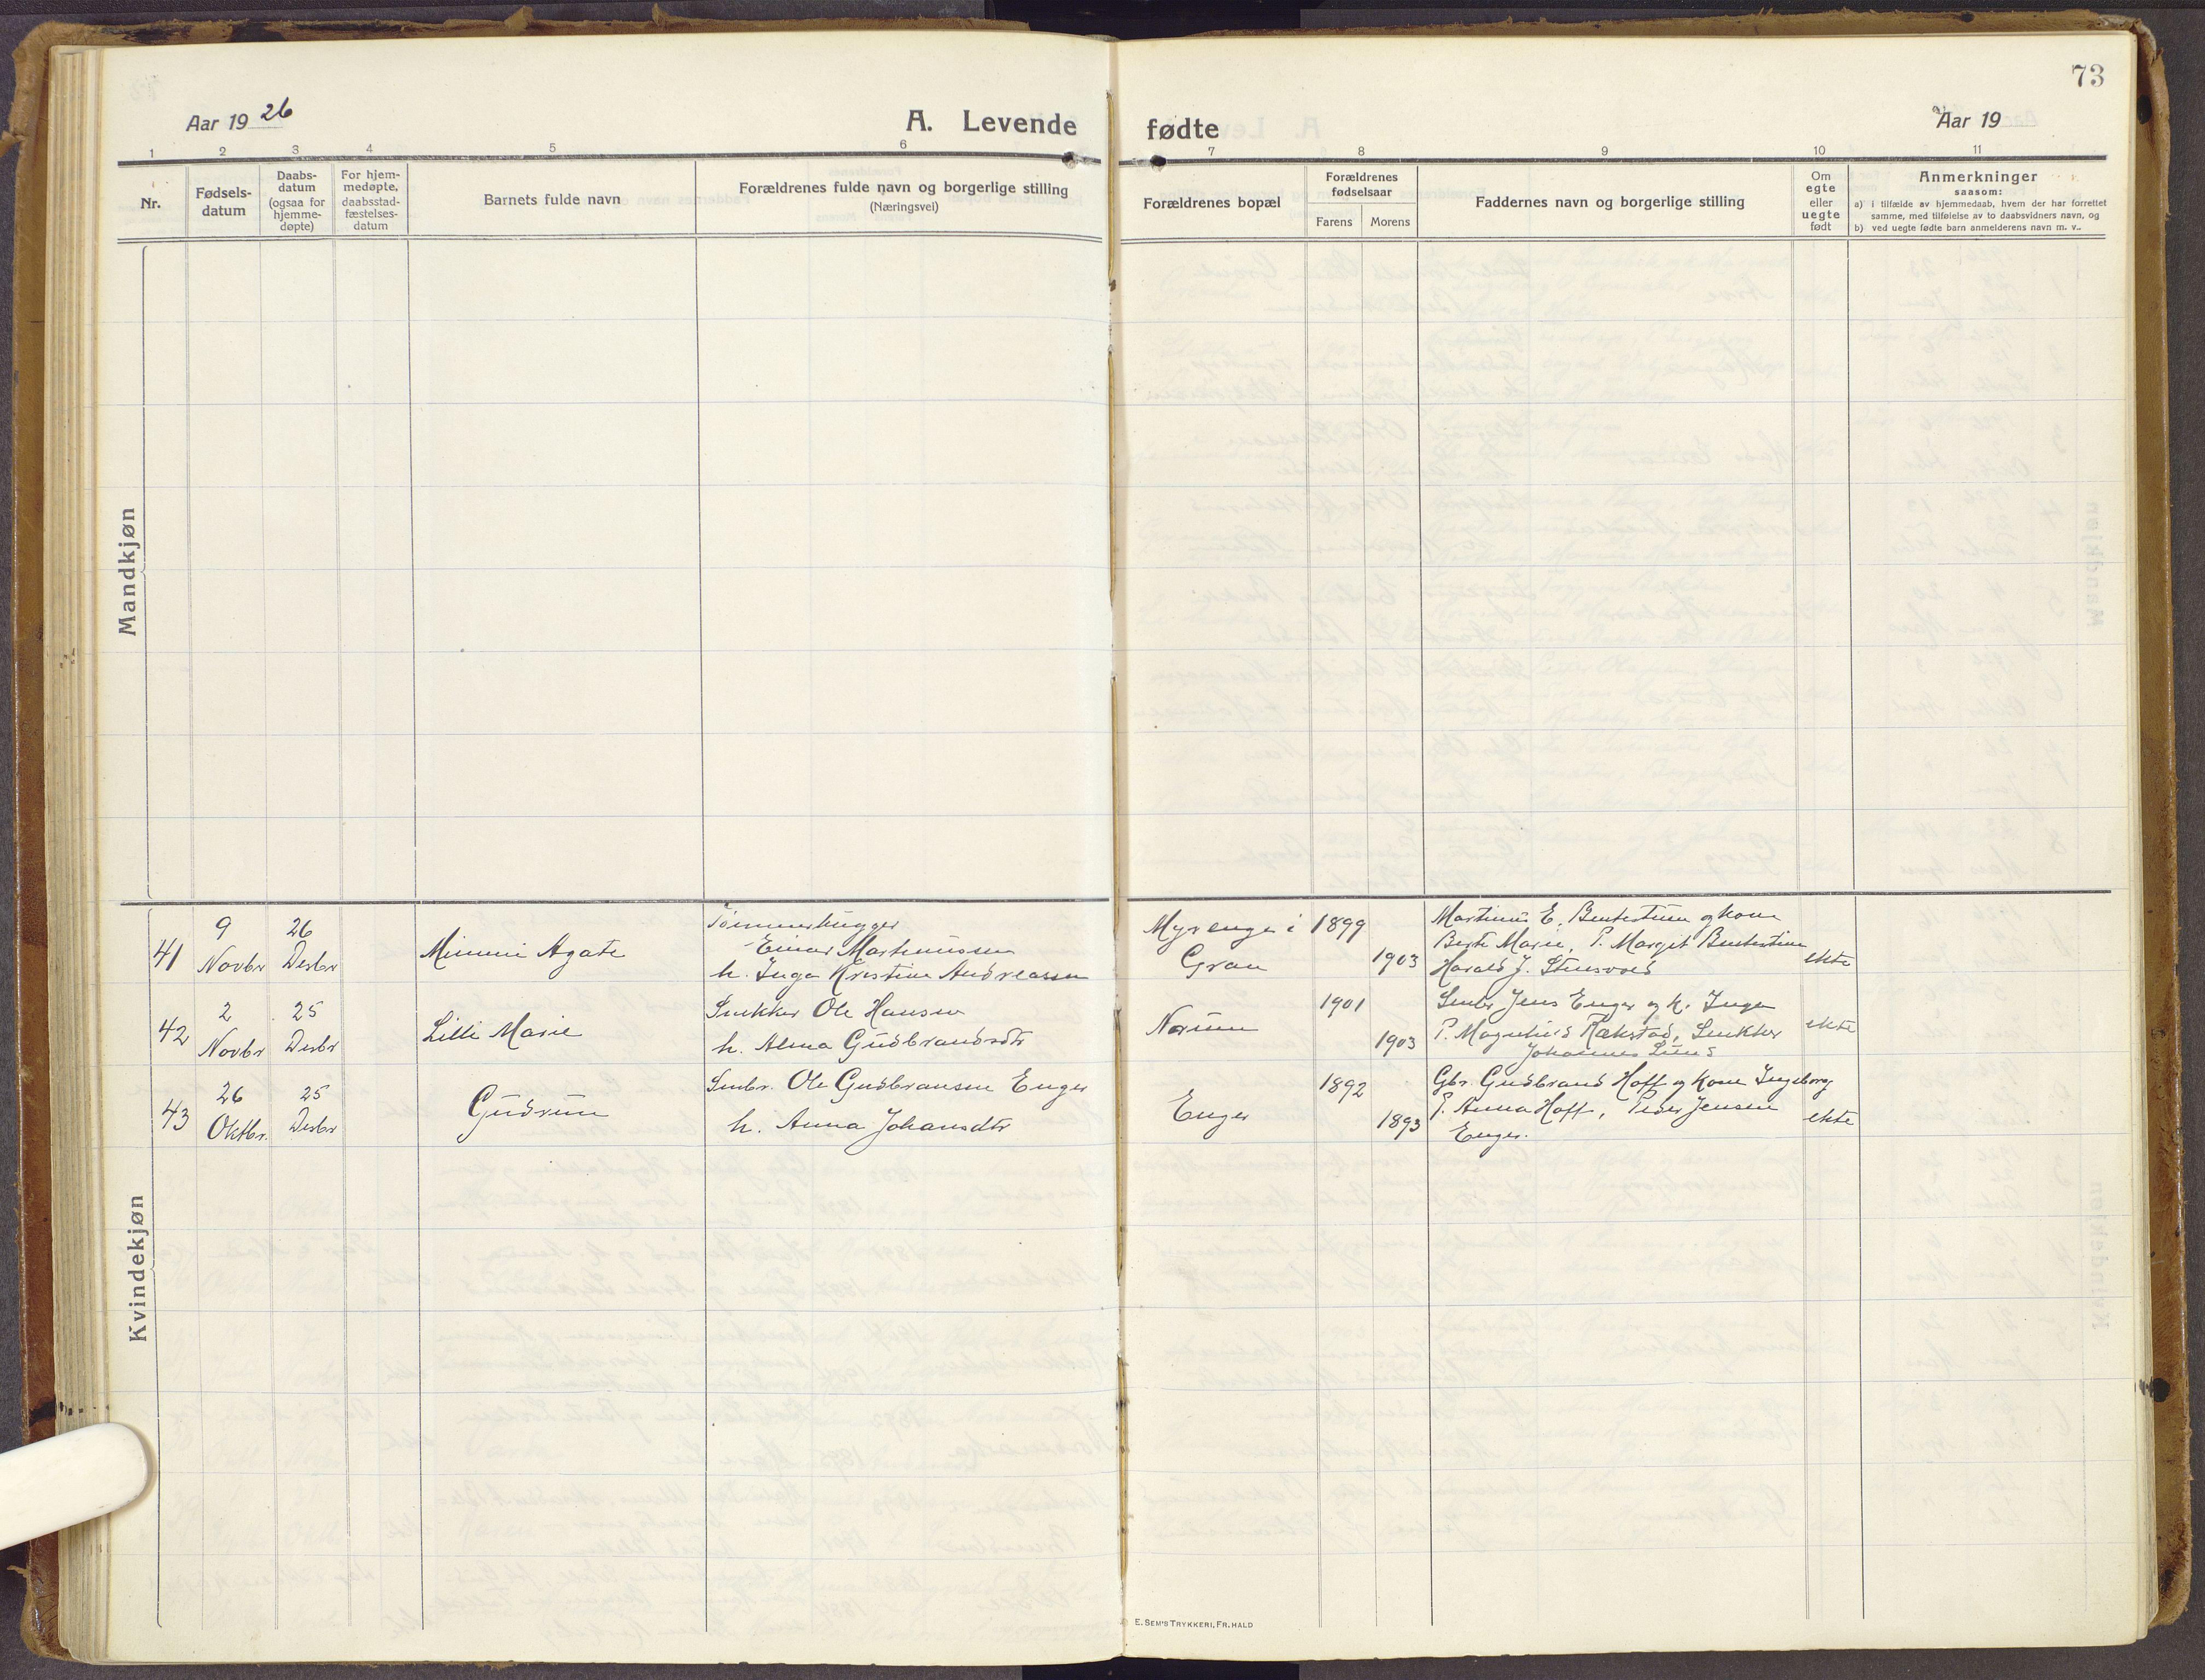 73
Aar 19 26
A. Levende
fødte
Aar 19
1 2 3 4 5 6 7 8 9 10 11
Nr.
Fødsels-
datum
Daabs-
datum
(ogsaa for
hjemme-
døpte)
For hjem-
medøpte,
daabsstad-
fæstelses-
datum
Barnets fulde navn
Forældrenes fulde navn og borgerlige stilling
(Næringsvei)
Forældrenes bopæl
Forældrenes
fødselsaar
Farens Morens
Faddernes navn og borgerlige stilling
Om
egte
eller
uegte
født
Anmerkninger
saasom:
a) i tilfælde av hjemmedaab, hvem der har forrettet
samme, med tilføielse av to daabsvidners navn, og
b) ved uegte fødte barn anmelderens navn m. v..
Mandkjøn
Kvindekjøn
41
9
Novbr
26
Desbr
Mimmi Agate
Tømmerhugger
Einar Martinussen
h. Inga Kristine Andreassen
Myrenge i
Gran
1899
1903
Martinus E. og kone
Berte Marie, P. Margit
Harald J. Stensvold
ekte
42
2
Novbr
25
Desbr
Lilli Marie
Snekker Ole Hansen
h. Alma Gudbrandsdtr
Norum
1901
1903
Smbr Jens Enger og k. Inga
P. Magnhild Rækstad, Snekker
Johannes Lund
ekte
43
26
Oktbr.
25
Desbr
Gudrun
Smbr. Ole Gudbransen Enger
h. Anna Johansdtr
Enger
1892
1893
Gbr. Gudbrand Hoff og Kone Ingeborg
P. Anna Hoff, Peder Jensen
Enger.
ekte
E. SEM'S TRYKKERI, FR. HALD